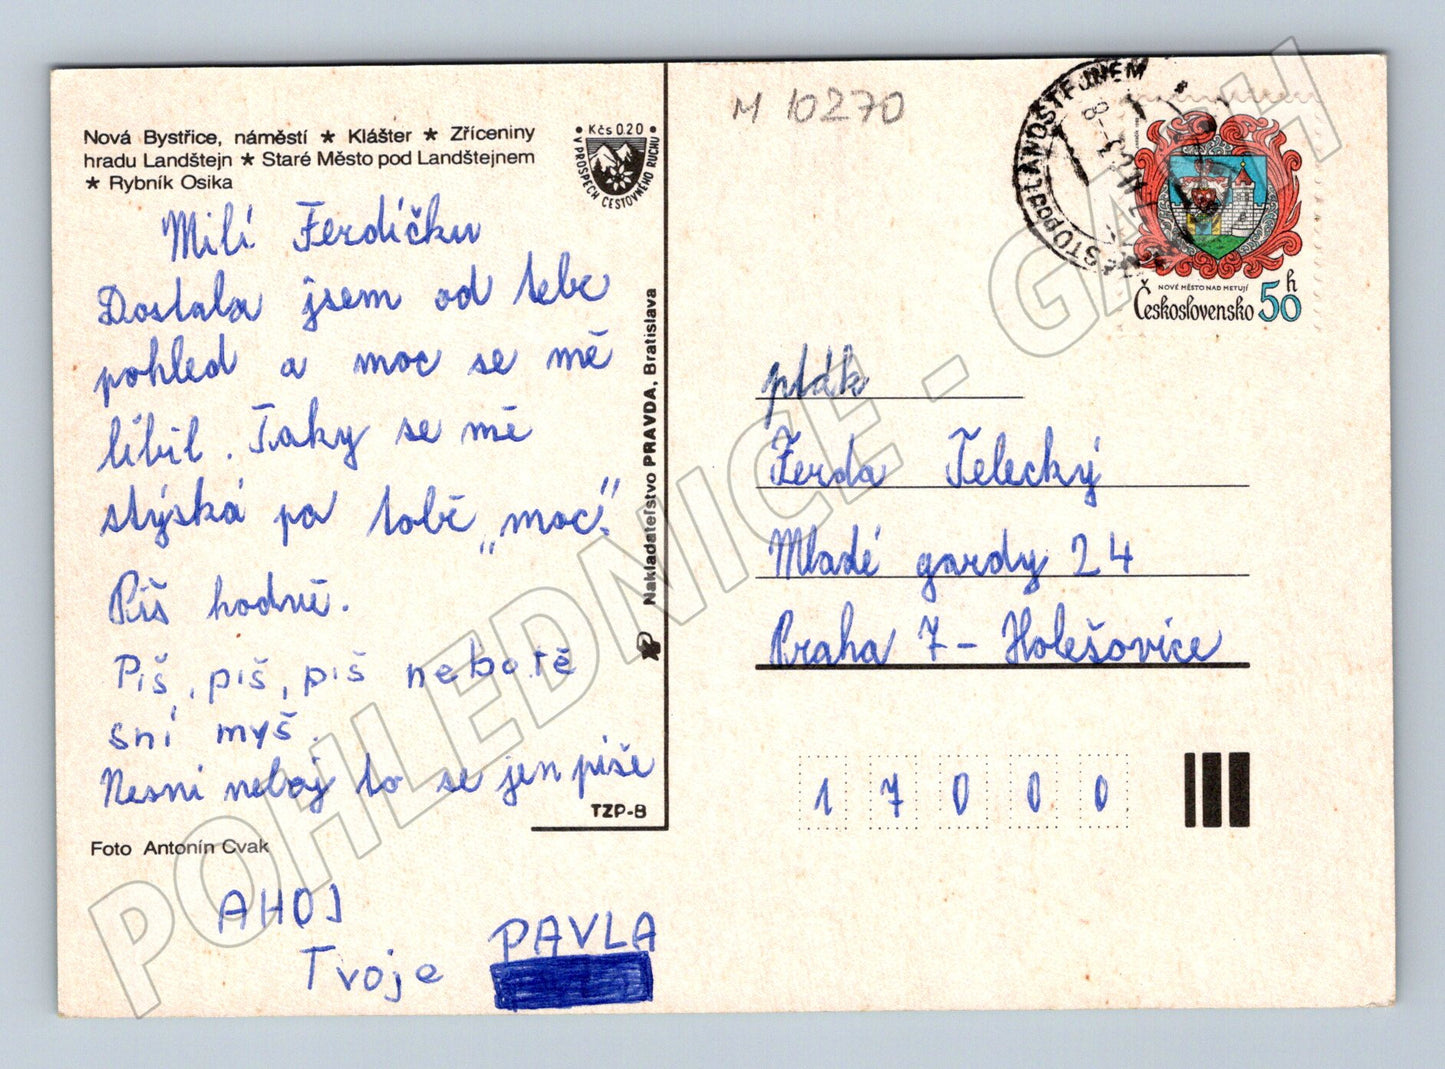 Nová Bystřice, náměstí ★ Klášter ★ Zříceniny
hradu Landštejn ★ Staré Město pod Landštejnem
★ Rybník Osika
• Kčs 0.20 •
V PROSPĚCH CESTOVNÉHO RUCHU
Milí Ferdíčku
Dostala jsem od tebe
pohled a moc se mě
líbil. Taky se mě
stýská po tobě „moc!“
Piš hodně.
Piš, piš, piš nebo tě
sní myš.
Nesni neboj to se jen píše
TZP-8
Foto Antonín Cvak
AHOJ
Tvoje PAVLA
Nakladateľstvo PRAVDA, Bratislava
M 10270
STO POD LANDŠTEJNEM
NOVÉ MĚSTO NAD METUJÍ
Československo 50 h
Ferda Telecký
Mladé gardy 24
Praha 7 - Holešovice
1 7 0 0 0
POHLEDNICE - GARCH